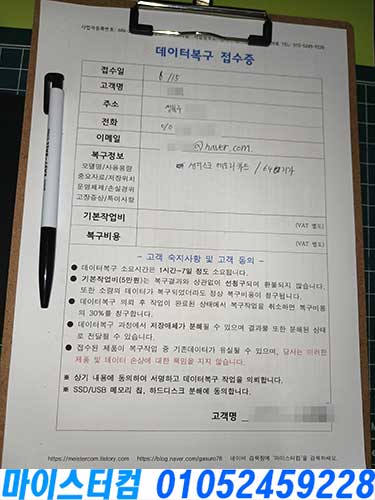 데이터복구 접수증
접수일 6/15
고객명
주소
전화 010
이메일 @naver.com
복구정보
모델명/사용용량
중요자료/저장위치
운영체제/손실경위
고장증상/특이사항
/ 64기가
기본작업비 (VAT 별도)
복구비용 (VAT 별도)
- 고객 숙지사항 및 고객 동의 -
● 데이터복구 소요시간은 1시간~7일 정도 소요됩니다.
● 기본작업비(5만원)는 복구결과와 상관없이 선청구되며 환불되지 않습니다.
또한 소량의 데이터가 복구되었더라도 정상 복구비용이 청구됩니다.
● 데이터복구 의뢰 후 작업이 완료된 상태에서 복구작업을 취소하면 복구비용
의 30%를 청구합니다.
● 데이터복구 과정에서 저장매체가 분해될 수 있으며 결과물 또한 분해된 상태
로 전달될 수 있습니다.
● 접수된 제품이 복구작업 중 기존데이터가 유실될 수 있으며, 당사는 이러한
제품 및 데이터 손상에 대한 책임을 지지 않습니다.
※ 상기 내용에 동의하여 서명하고 데이터복구 작업을 의뢰합니다.
※ SSD/USB 메모리 칩, 하드디스크 분해에 동의합니다.
고객명
https://meistercom.tistory.com https://blog.naver.com/gasuro78 네이버 검색창에 "마이스터컴"을 검색하세요.
마이스터컴 01052459228